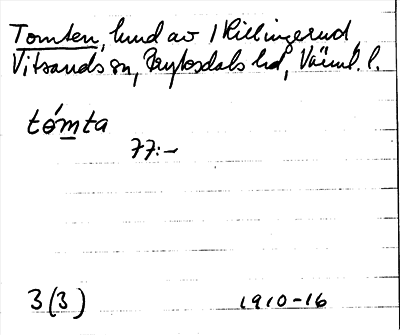 Tomten, lund av 1 Killingerud,
Vitsands sn, Fryksdals hd, Värml. l.
tómta
77:-
3(3) 1910-16